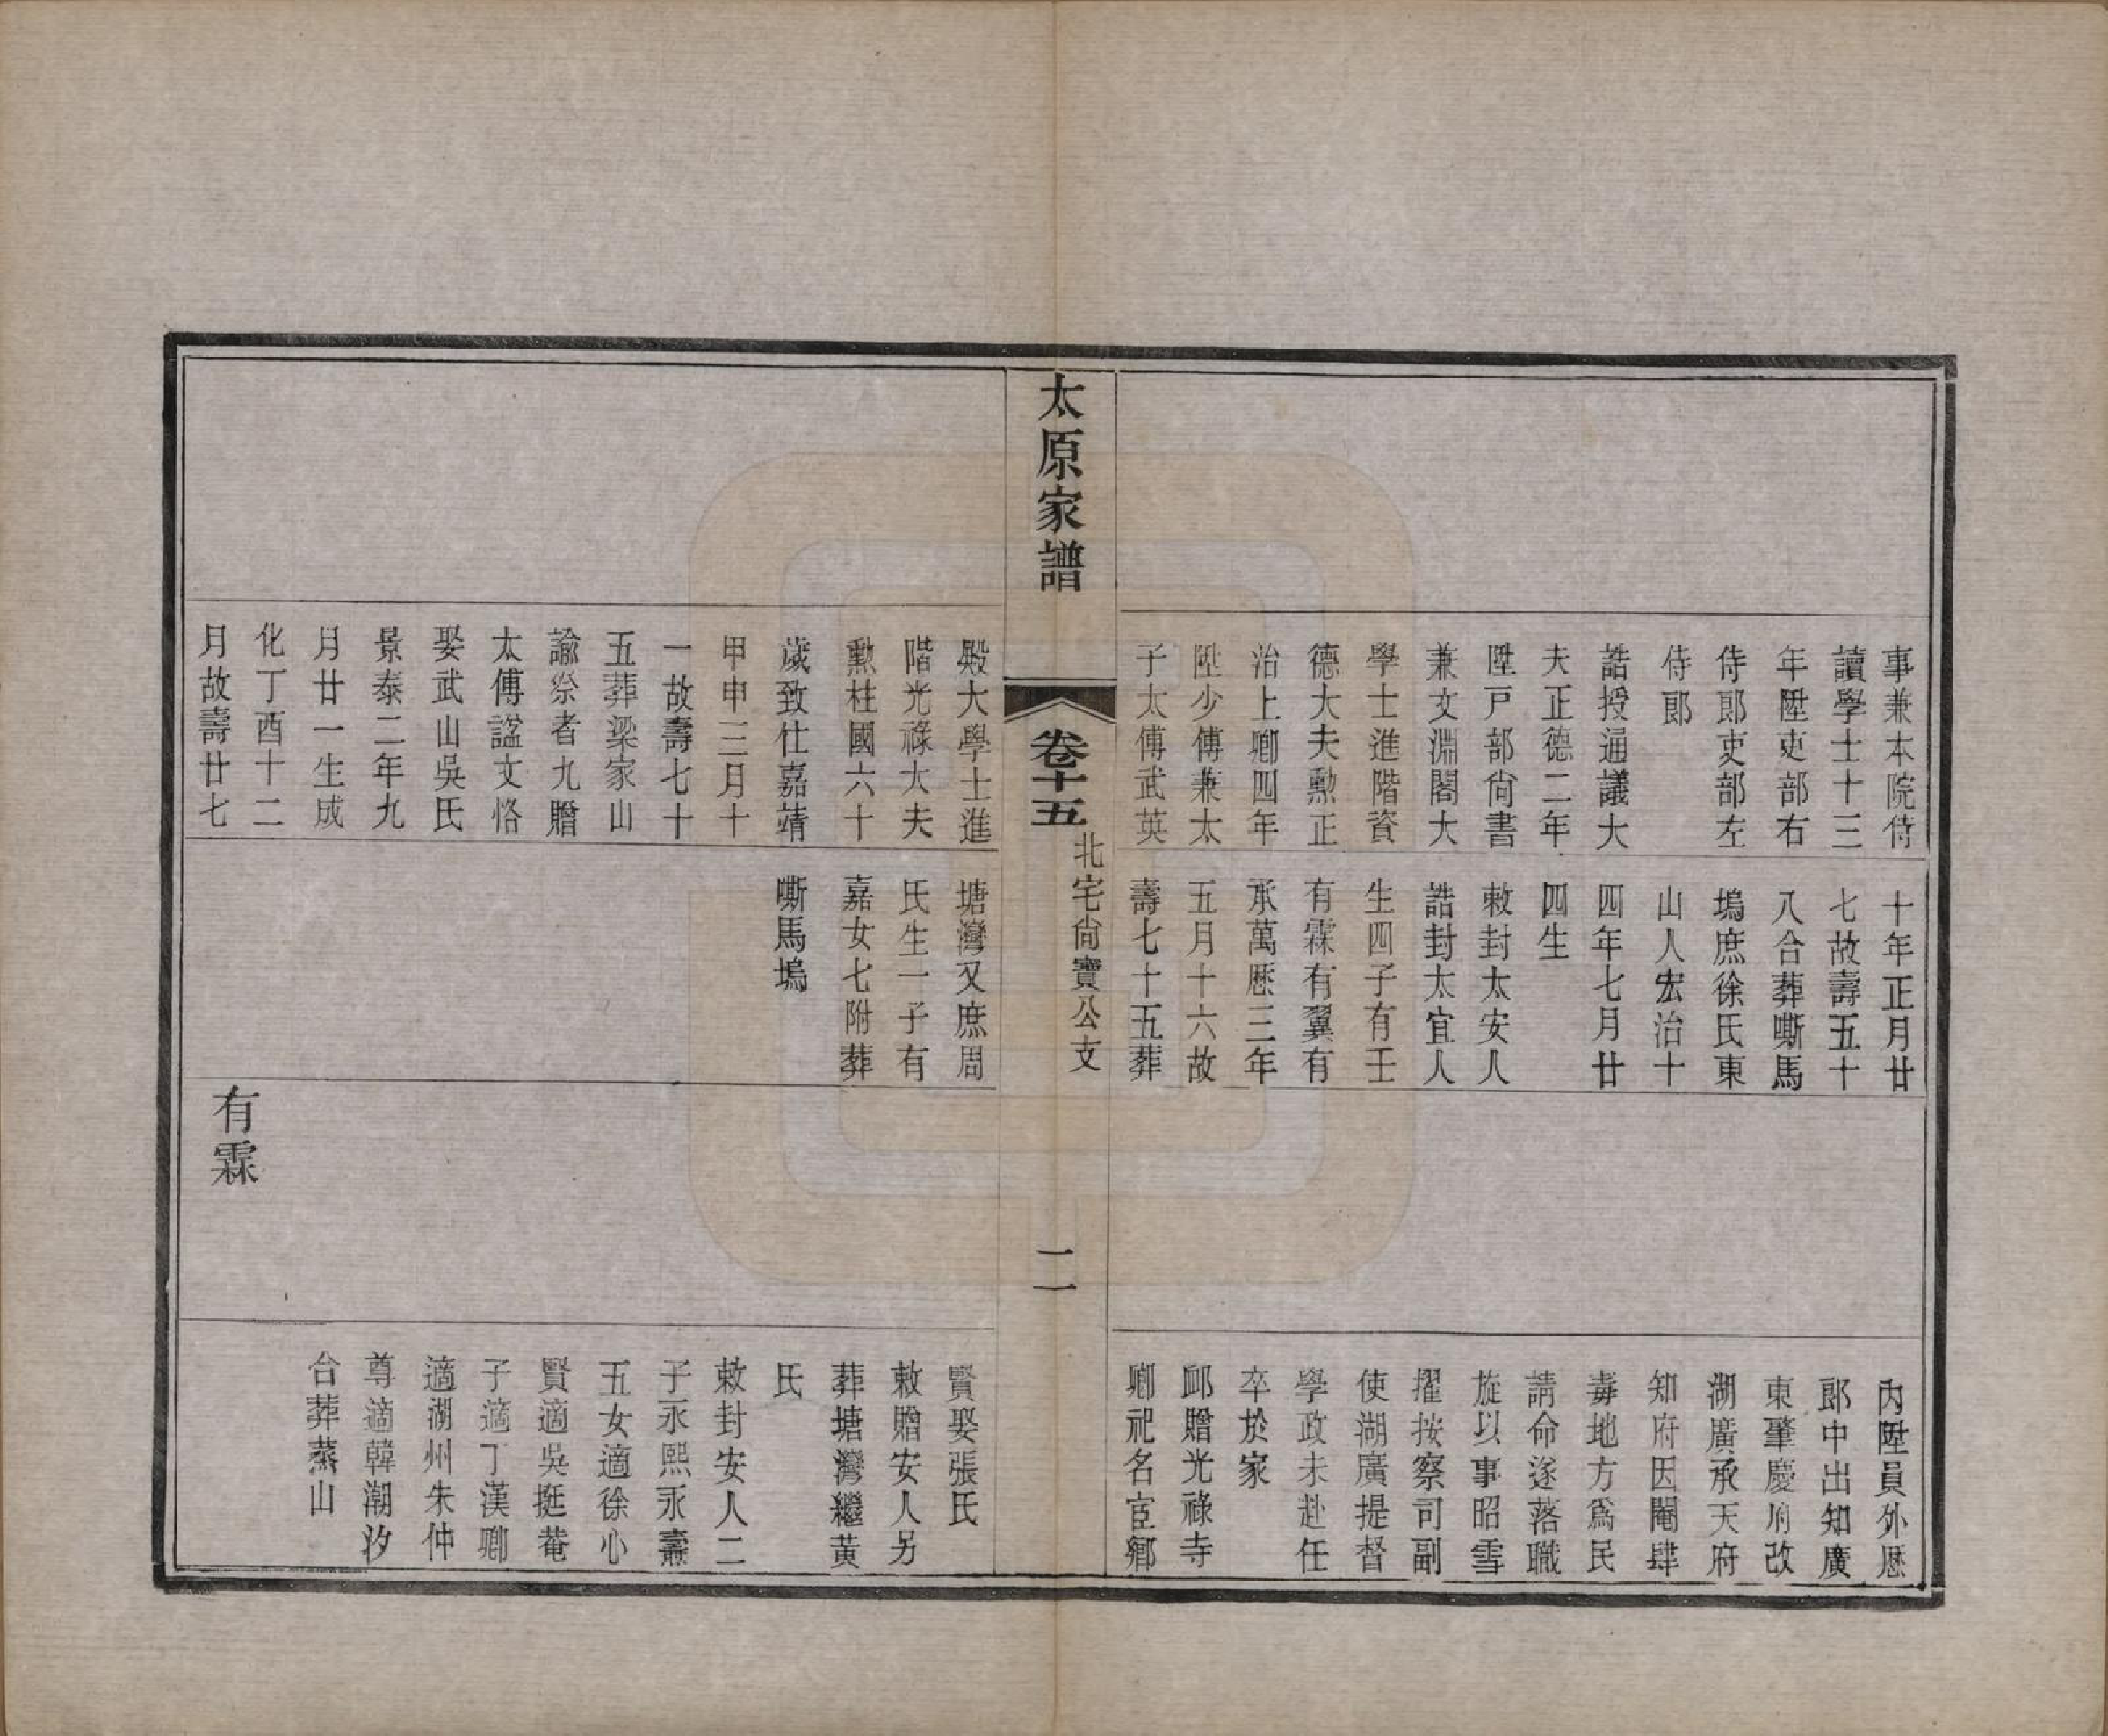 事兼本院侍
讀學士十三
年陞吏部右
侍郎吏部左
侍郎
誥授通議大
夫正德二年
陞戸部尚書
兼文淵閣大
學士進階資
德大夫勲正
治上卿四年
陞少傅兼太
子太傅武英
十年正月廿
七故壽五十
八合葬嘶馬
塢庶徐氏東
山人宏治十
四年七月廿
四生
敕封太安人
誥封太宜人
生四子有壬
有霖有翼有
承萬厯三年
五月十六故
壽七十五葬
內陞員外厯
郎中出知廣
東肇慶府改
湖廣承天府
知府因閹肆
毒地方爲民
請命遂落職
旋以事昭雪
擢按察司副
使湖廣提督
學政未赴任
卒於家
䘏贈光祿寺
卿祀名宦鄉
太原家譜
卷十五
北宅尚寶公支
二
殿大學士進
階光祿大夫
勲柱國六十
歲致仕嘉靖
甲申三月十
一故壽七十
五葬梁家山
諭祭者九贈
太傅諡文恪
娶武山吳氏
景泰二年九
月廿一生成
化丁酉十二
月故壽廿七
塘灣又庶周
氏生一子有
嘉女七附葬
嘶馬塢
有霖
賢娶張氏
敕贈安人另
葬塘灣繼黃
氏
敕封安人二
子永熙永燾
五女適徐心
賢適吳挺菴
子適丁漢卿
適湖州朱仲
尊適韓潮汐
合葬蒸山